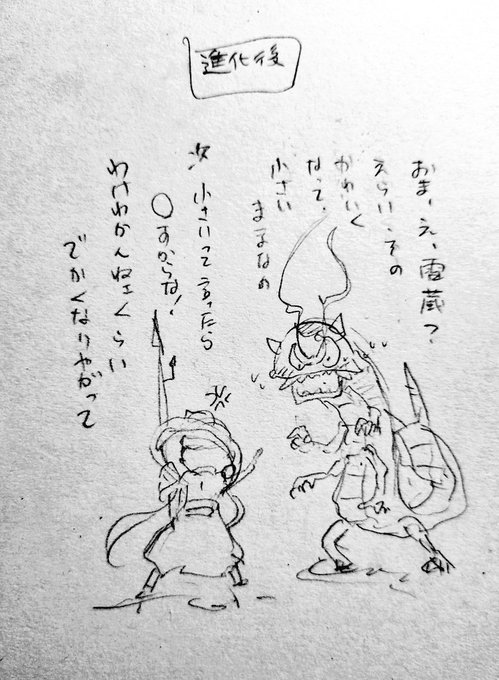 進化後
おま、え、雷蔵?
えらい、その
かわいく
なって、
小さい
まるなの
次 小さいって言ったら
〇すからな!
わけわかんねぇくらい
でかくなりやがって